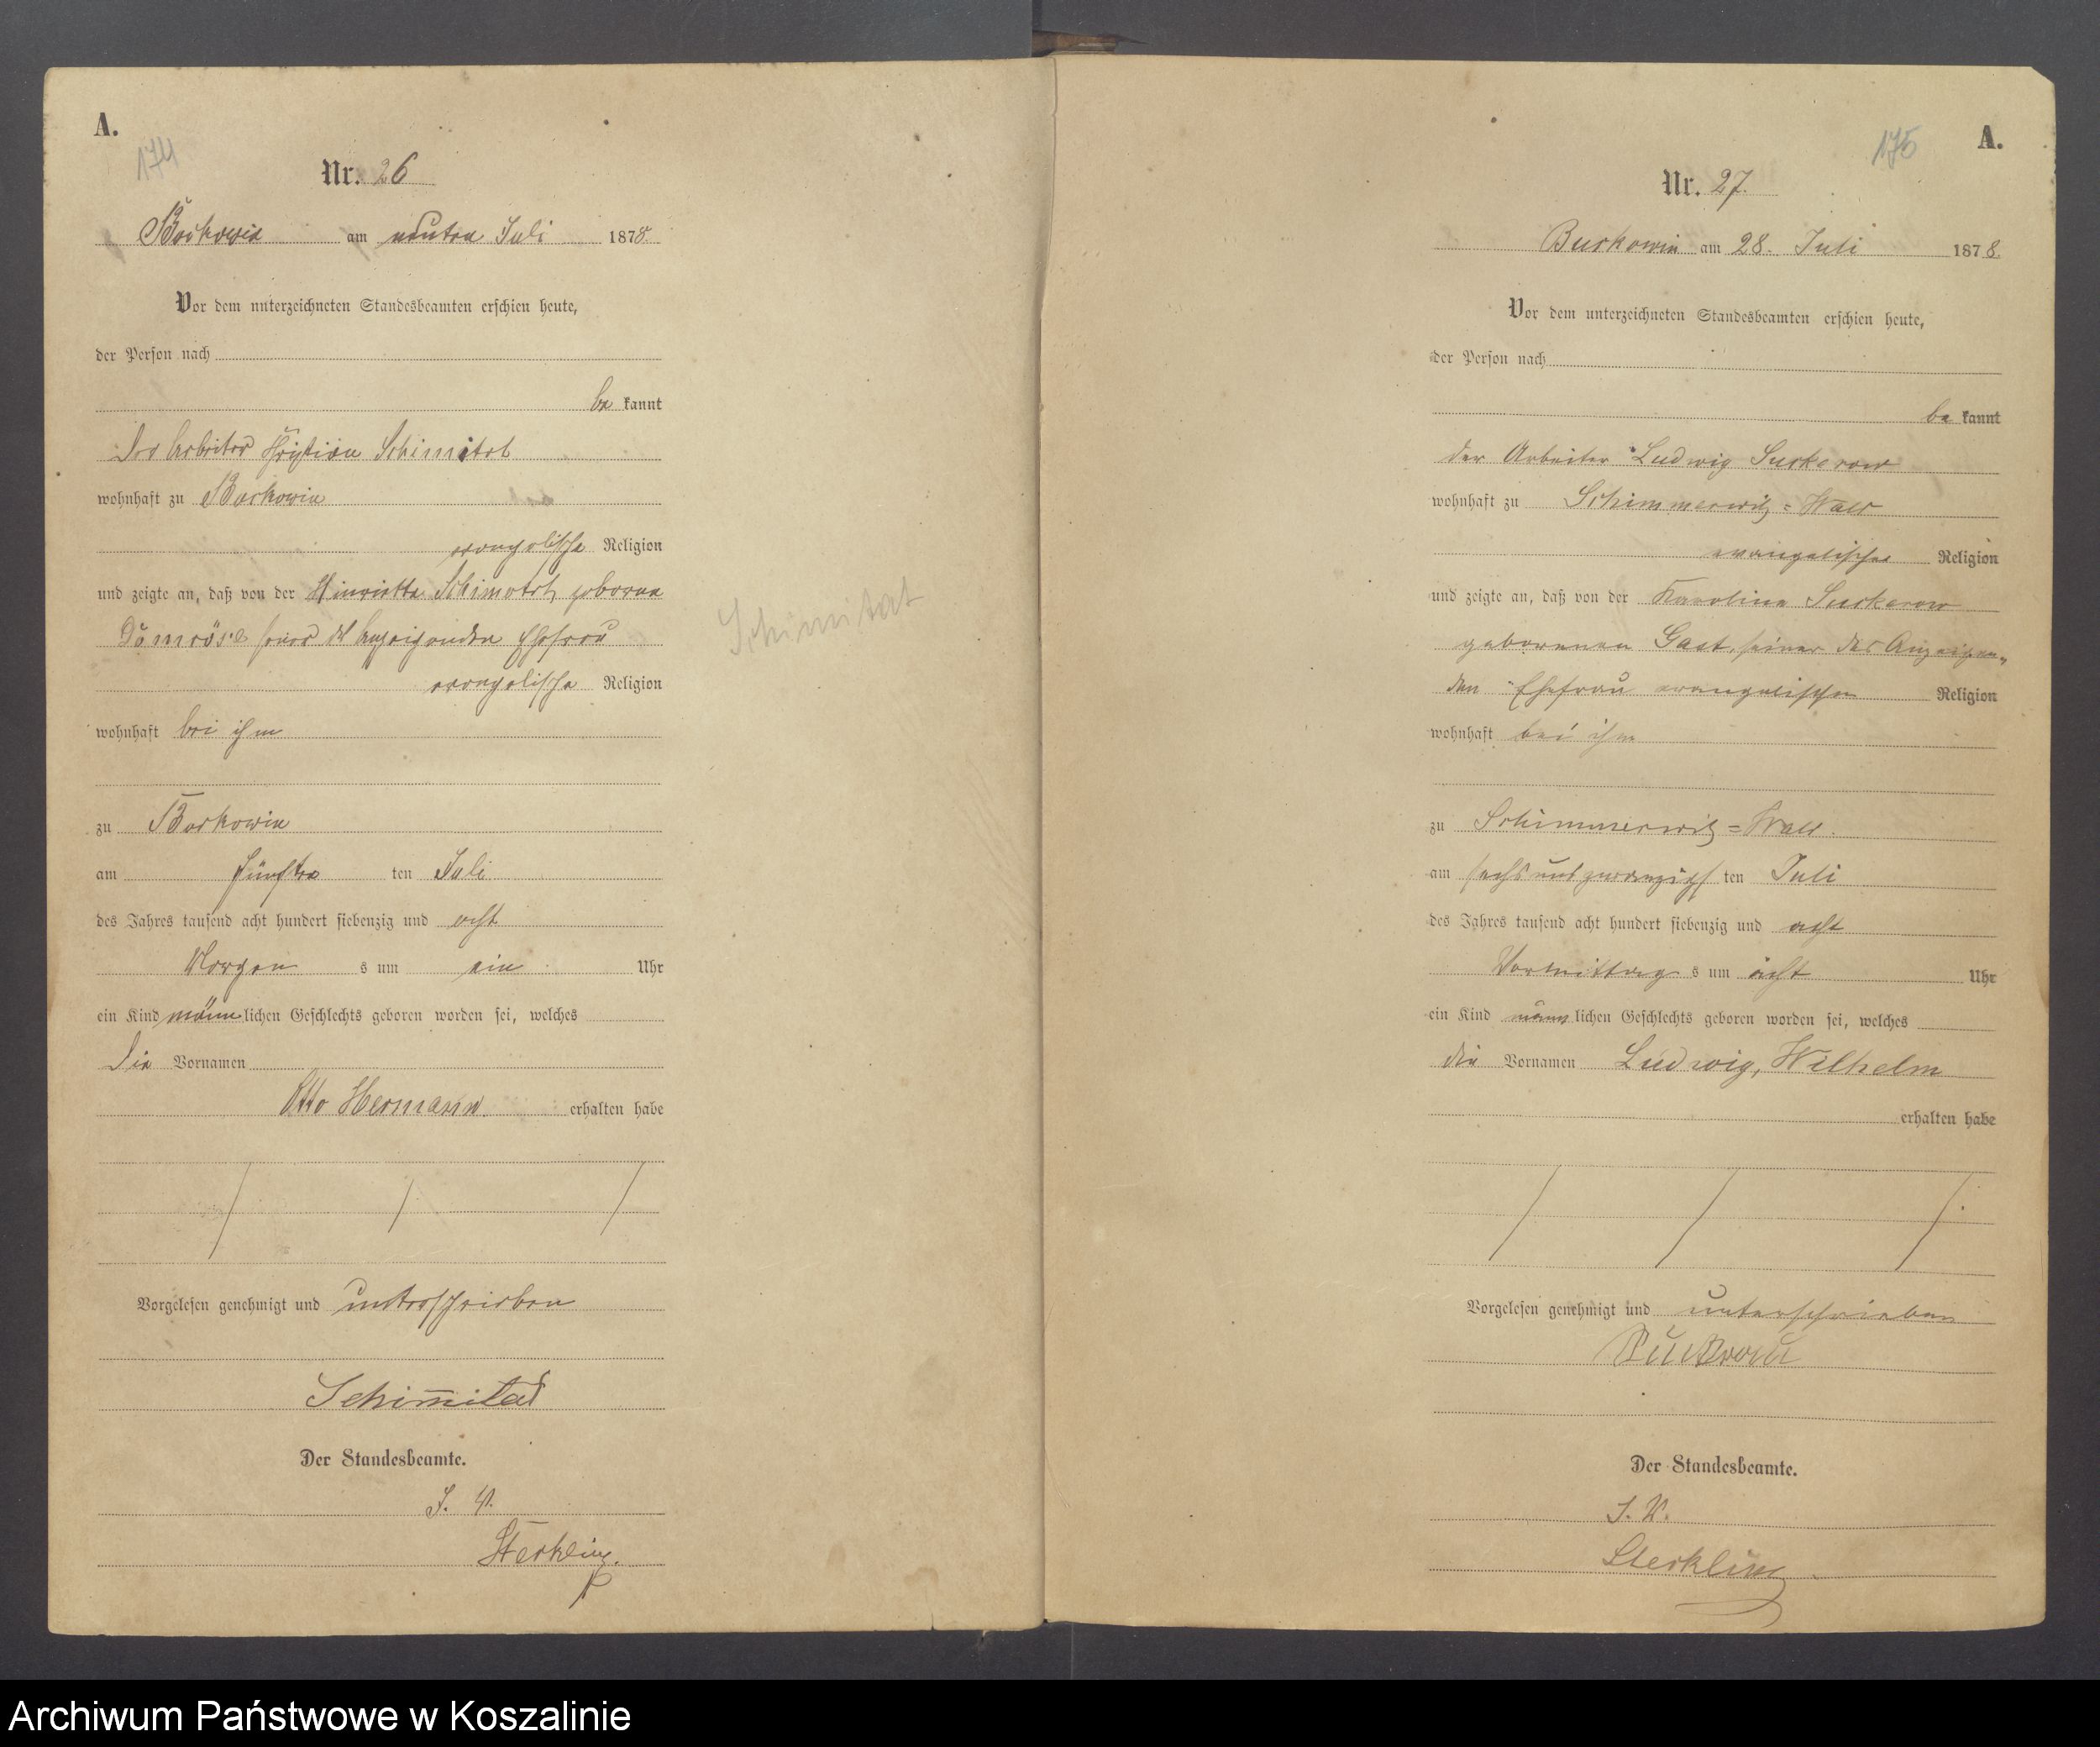 A.
174
Nr. 26
Burkowin am neunten Juli 1878.
Vor dem unterzeichneten Standesbeamten erschien heute,
der Person nach
be kannt
Der Arbeiter Christian Schimitat
wohnhaft zu Burkowin
evangelische Religion
und zeigte an, daß von der Hinriette Schimatat geborne
Domröse seiner des Anzeigenden Ehefrau
evangelische Religion
wohnhaft bei ihm
zu Burkowin
am fünften ten Juli
des Jahres tausend acht hundert siebenzig und acht
Morgen s um ein Uhr
ein Kind männ lichen Geschlechts geboren worden sei, welches
die Vornamen
Otto Hermann erhalten habe
Vorgelesen genehmigt und unterschrieben
Schimitat
Der Standesbeamte.
I. V.
Sterkling.
Schimitat
175
A.
Nr. 27.
Burkowin am 28. Juli 1878.
Vor dem unterzeichneten Standesbeamten erschien heute,
der Person nach
be kannt
der Arbeiter Ludwig Suckerow
wohnhaft zu Schimmerwitz=Wald
evangelischer Religion
und zeigte an, daß von der Karoline Suckerow
geborenen Gast, seiner des Anzeigen„
den Ehefrau evangelischen Religion
wohnhaft bei ihm
zu Schimmerwitz=Wald.
am sechsundzwanzigs ten Juli
des Jahres tausend acht hundert siebenzig und acht
Vormittag s um acht Uhr
ein Kind männ lichen Geschlechts geboren worden sei, welches
die Vornamen Ludwig, Wilhelm
erhalten habe
Vorgelesen genehmigt und unterschrieben
Der Standesbeamte.
I. V.
Sterkling
Archiwum Państwowe w Koszalinie